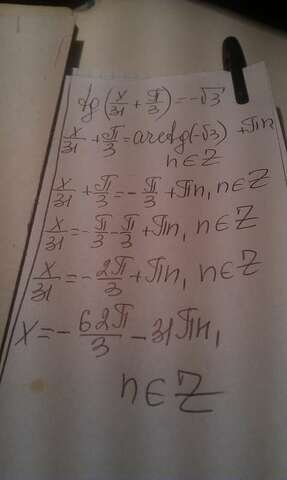 tg(x/31 + π/3) = -√3
x/31 + π/3 = arctg(-√3) + πn
n∈Z
x/31 + π/3 = -π/3 + πn, n∈Z
x/31 = -π/3 - π/3 + πn, n∈Z
x/31 = -2π/3 + πn, n∈Z
x = -62π/3 - 31πn,
n∈Z